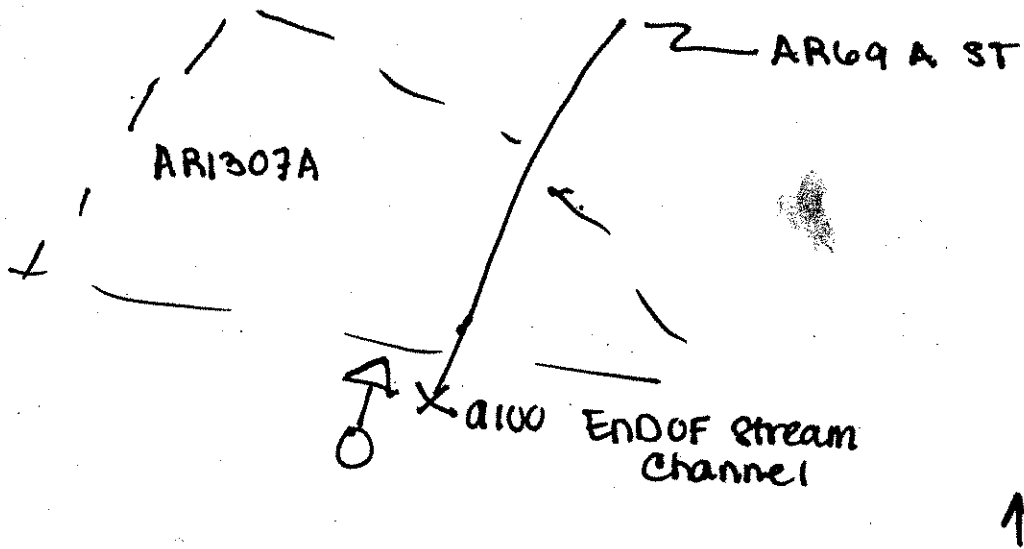 AR69 A ST
AR1307A
a100 EnD OF Stream
Channel